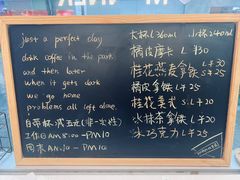 just a perfect day
drink coffee in the park
and then later
when it gets dark
we go home
problems all left alone
自带杯减五元(非一次性)
工作日AM 8:00 - PM10
周末AM.10 - PM10
大杯L360ml 小杯240ml
橘皮摩卡 L¥30
桂花燕麦拿铁 L¥30
S¥25
橘皮拿铁 L¥25
桂花美式 S.L¥20
冰抹茶拿铁 L¥25
冰巧克力 L¥25